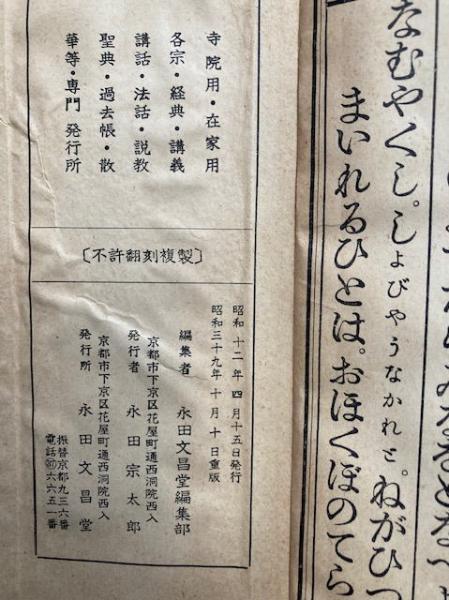 なむやくし。しよびやうなかれと。ねがひつ
まいれるひとは。おほくぼのてら
寺院用・在家用
各宗・経典・講義
講話・法話・説教
聖典・過去帳・散
華等・専門 発行所
〔不許翻刻複製〕
昭和十二年四月十五日発行
昭和三十九年十月十日重版
編集者 永田文昌堂編集部
京都市下京区花屋町通西洞院西入
発行者 永田宗太郎
京都市下京区花屋町通西洞院西入
発行所 永田文昌堂
振替京都九三六番
電話㉟六六五一番